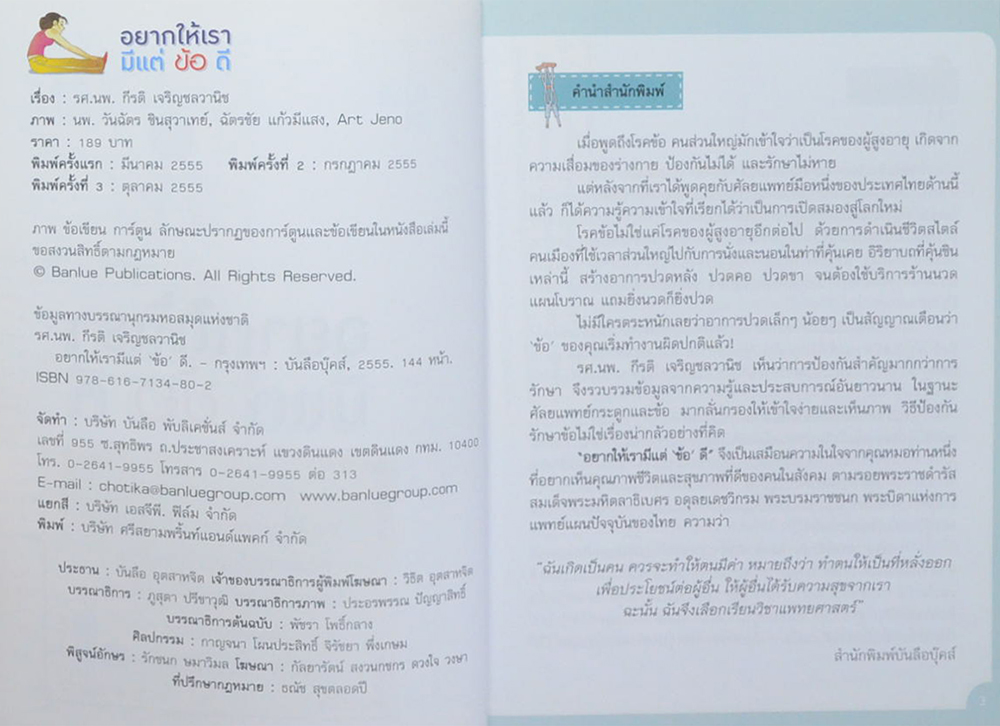 อยากให้เรา
มีแต่ ข้อ ดี
เรื่อง : รศ.นพ. กีรติ เจริญชลวานิช
ภาพ : นพ. วันฉัตร ชินสุวาเทย์, ฉัตรชัย แก้วมีแสง, Art Jeno
ราคา : 189 บาท
พิมพ์ครั้งแรก : มีนาคม 2555 พิมพ์ครั้งที่ 2 : กรกฎาคม 2555
พิมพ์ครั้งที่ 3 : ตุลาคม 2555
ภาพ ข้อเขียน การ์ตูน ลักษณะปรากฏของการ์ตูนและข้อเขียนในหนังสือเล่มนี้
ขอสงวนสิทธิ์ตามกฎหมาย
© Banlue Publications. All Rights Reserved.
ข้อมูลทางบรรณานุกรมหอสมุดแห่งชาติ
รศ.นพ. กีรติ เจริญชลวานิช
อยากให้เรามีแต่ 'ข้อ' ดี. - กรุงเทพฯ : บันลือบุ๊คส์, 2555. 144 หน้า.
ISBN 978-616-7134-80-2
จัดทำ : บริษัท บันลือ พับลิเคชั่นส์ จำกัด
เลขที่ 955 ซ.สุทธิพร ถ.ประชาสงเคราะห์ แขวงดินแดง เขตดินแดง กทม. 10400
โทร. 0-2641-9955 โทรสาร 0-2641-9955 ต่อ 313
E-mail : chotika@banluegroup.com www.banluegroup.com
แยกสี : บริษัท เอสจีพี. ฟิล์ม จำกัด
พิมพ์ : บริษัท ศรีสยามพริ้นท์แอนด์แพคก์ จำกัด
ประธาน : บันลือ อุตสาหจิต เจ้าของบรรณาธิการผู้พิมพ์โฆษณา : วิธิต อุตสาหจิต
บรรณาธิการ : ภูสุดา ปรีชาวุฒิ บรรณาธิการภาพ : ประอรพรรณ ปัญญาสิทธิ์
บรรณาธิการต้นฉบับ : พัชรา โพธิ์กลาง
ศิลปกรรม : กาญจนา โผนประสิทธิ์ จิรัชยา พึ่งเกษม
พิสูจน์อักษร : รักชนก ษมาวิมล โฆษณา : กัลยารัตน์ สงวนกชกร ดวงใจ วงษา
ที่ปรึกษากฎหมาย : ธณัช สุขตลอดปี
คำนำสำนักพิมพ์
เมื่อพูดถึงโรคข้อ คนส่วนใหญ่มักเข้าใจว่าเป็นโรคของผู้สูงอายุ เกิดจาก
ความเสื่อมของร่างกาย ป้องกันไม่ได้ และรักษาไม่หาย
แต่หลังจากที่เราได้พูดคุยกับศัลยแพทย์มือหนึ่งของประเทศไทยด้านนี้
แล้ว ก็ได้ความรู้ความเข้าใจที่เรียกได้ว่าเป็นการเปิดสมองสู่โลกใหม่
โรคข้อไม่ใช่แค่โรคของผู้สูงอายุอีกต่อไป ด้วยการดำเนินชีวิตสไตล์
คนเมืองที่ใช้เวลาส่วนใหญ่ไปกับการนั่งและนอนในท่าที่คุ้นเคย อิริยาบถที่คุ้นชิน
เหล่านี้ สร้างอาการปวดหลัง ปวดคอ ปวดขา จนต้องใช้บริการร้านนวด
แผนโบราณ แถมยิ่งนวดก็ยิ่งปวด
ไม่มีใครตระหนักเลยว่าอาการปวดเล็กๆ น้อยๆ เป็นสัญญาณเตือนว่า
'ข้อ' ของคุณเริ่มทำงานผิดปกติแล้ว!
รศ.นพ. กีรติ เจริญชลวานิช เห็นว่าการป้องกันสำคัญมากกว่าการ
รักษา จึงรวบรวมข้อมูลจากความรู้และประสบการณ์อันยาวนาน ในฐานะ
ศัลยแพทย์กระดูกและข้อ มากลั่นกรองให้เข้าใจง่ายและเห็นภาพ วิธีป้องกัน
รักษาข้อไม่ใช่เรื่องน่ากลัวอย่างที่คิด
"อยากให้เรามีแต่ 'ข้อ' ดี" จึงเป็นเสมือนความในใจจากคุณหมอท่านหนึ่ง
ที่อยากเห็นคุณภาพชีวิตและสุขภาพที่ดีของคนในสังคม ตามรอยพระราชดำรัส
สมเด็จพระมหิตลาธิเบศร อดุลยเดชวิกรม พระบรมราชชนก พระบิดาแห่งการ
แพทย์แผนปัจจุบันของไทย ความว่า
"ฉันเกิดเป็นคน ควรจะทำให้ตนมีค่า หมายถึงว่า ทำตนให้เป็นที่หลั่งออก
เพื่อประโยชน์ต่อผู้อื่น ให้ผู้อื่นได้รับความสุขจากเรา
ฉะนั้น ฉันจึงเลือกเรียนวิชาแพทยศาสตร์"
สำนักพิมพ์บันลือบุ๊คส์
3